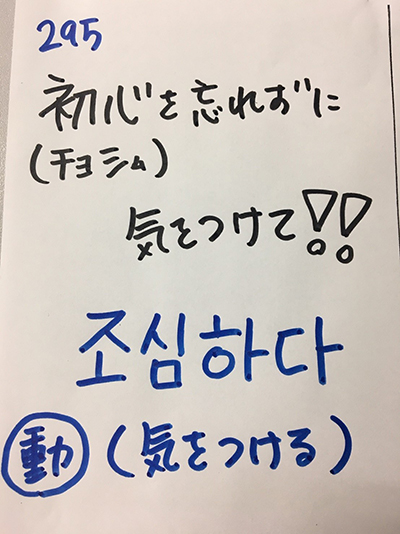 295
初心を忘れずに
(チョシム)
気をつけて!!
조심하다
動 (気をつける)